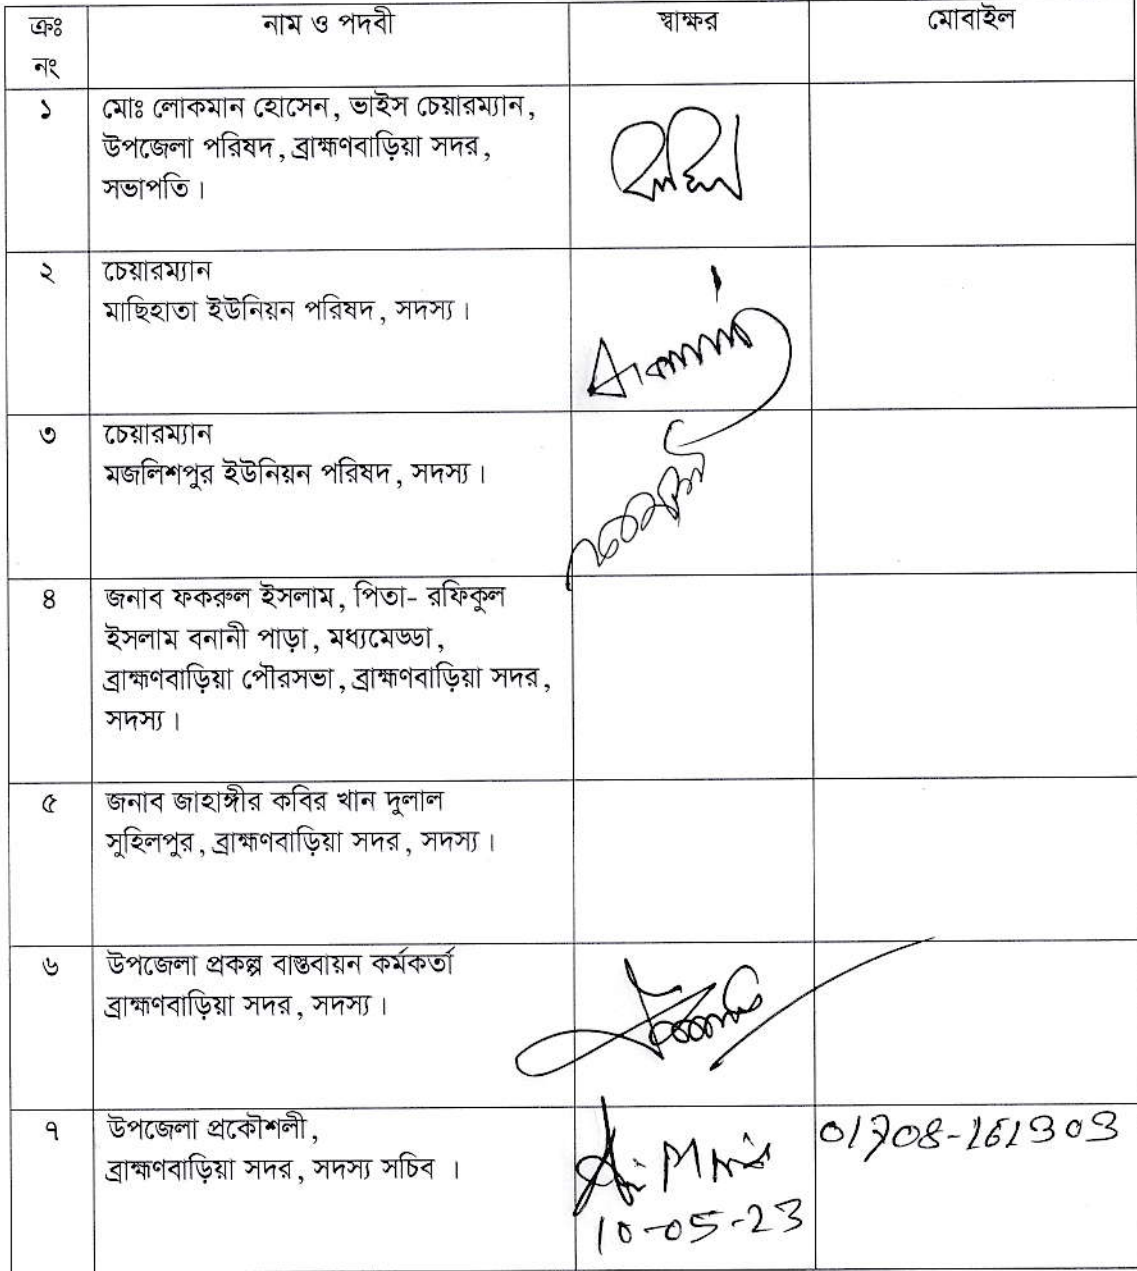 ক্রঃ নাম ও পদবী স্বাক্ষর মোবাইল
নং
১ মোঃ লোকমান হোসেন, ভাইস চেয়ারম্যান,
উপজেলা পরিষদ, ব্রাহ্মণবাড়িয়া সদর,
সভাপতি।
২ চেয়ারম্যান
মাছিহাতা ইউনিয়ন পরিষদ, সদস্য।
৩ চেয়ারম্যান
মজলিশপুর ইউনিয়ন পরিষদ, সদস্য।
৪ জনাব ফকরুল ইসলাম, পিতা- রফিকুল
ইসলাম বনানী পাড়া, মধ্যমেড্ডা,
ব্রাহ্মণবাড়িয়া পৌরসভা, ব্রাহ্মণবাড়িয়া সদর,
সদস্য।
৫ জনাব জাহাঙ্গীর কবির খান দুলাল
সুহিলপুর, ব্রাহ্মণবাড়িয়া সদর, সদস্য।
৬ উপজেলা প্রকল্প বাস্তবায়ন কর্মকর্তা
ব্রাহ্মণবাড়িয়া সদর, সদস্য।
৭ উপজেলা প্রকৌশলী, 01708-161303
ব্রাহ্মণবাড়িয়া সদর, সদস্য সচিব ।
10-05-23